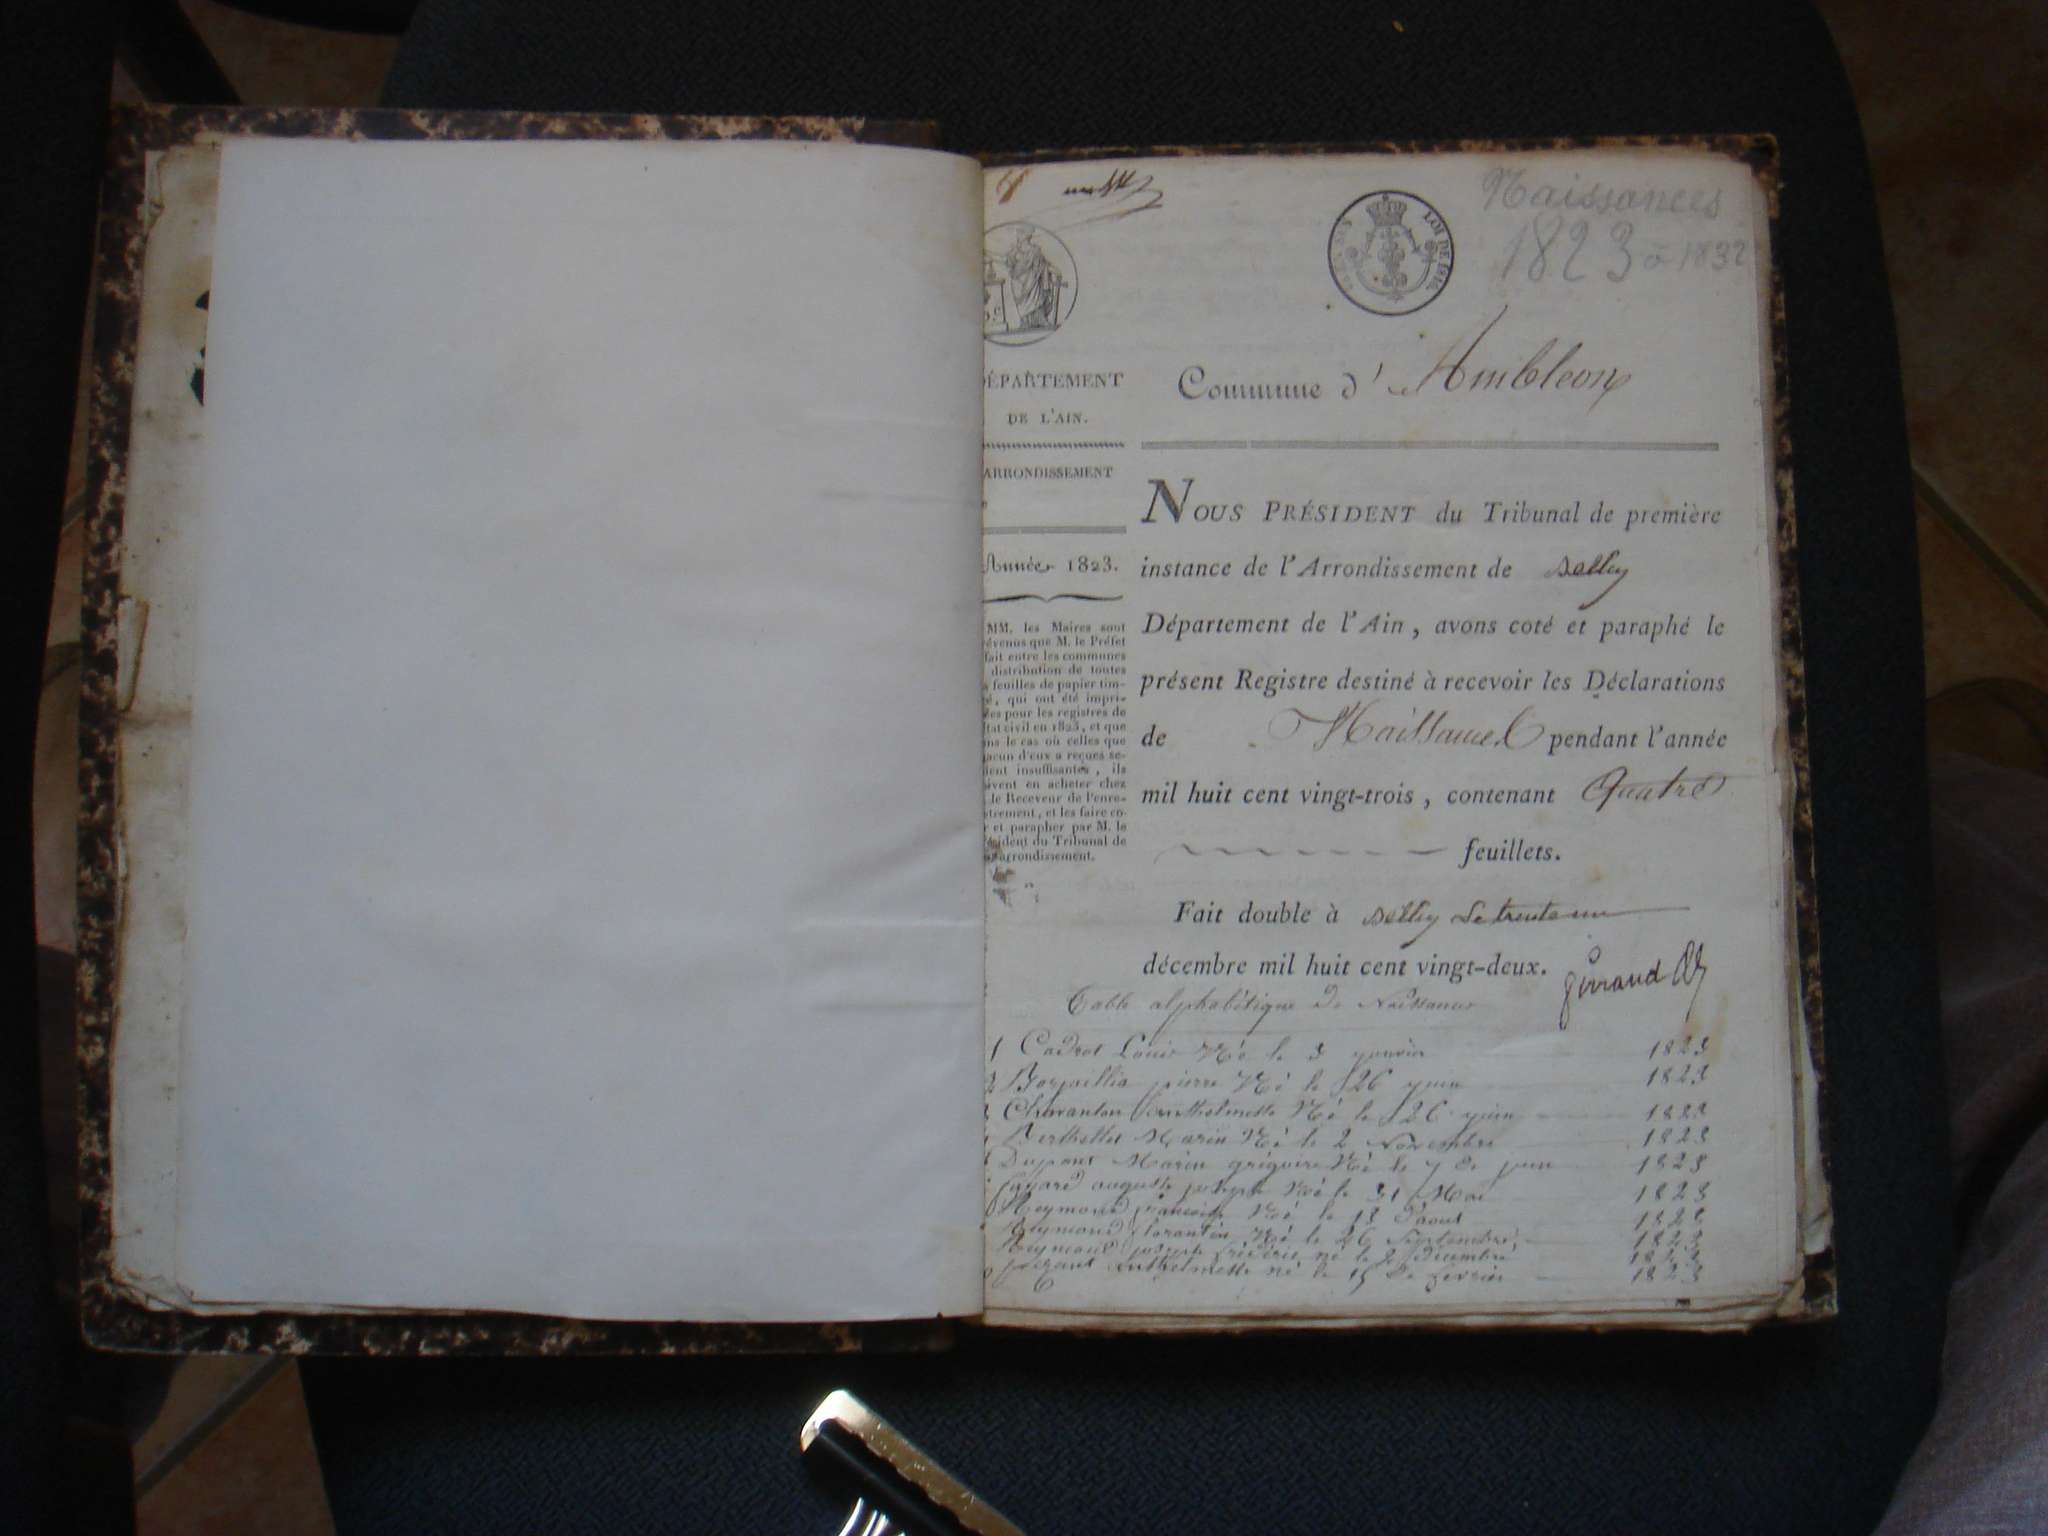 Naissances
1823 à 1832
LOI DE 1816
DÉPARTEMENT
DE L'AIN.
ARRONDISSEMENT
Année 1823.
MM. les Maires sont
évenus que M. le Préfet
fait entre les communes
distribution de toutes
feuilles de papier tim-
é, qui ont été impri-
ées pour les registres de
tat civil en 1823, et que
ns le cas où celles que
acun d'eux a reçues se-
ient insuffisantes, ils
ivent en acheter chez
le Receveur de l'enre-
strement, et les faire co-
r et parapher par M. le
ésident du Tribunal de
arrondissement.
Commune d'Ambleon
NOUS PRÉSIDENT du Tribunal de première
instance de l'Arrondissement de Belley
Département de l'Ain, avons coté et paraphé le
présent Registre destiné à recevoir les Déclarations
de Naissances pendant l'année
mil huit cent vingt-trois, contenant Quatre
feuillets.
Fait double à Belley Le trente un
décembre mil huit cent vingt-deux.
Table alphabétique de Naissances
1 Cadrot Louis Né le 3 janvier 1823
2 pierre Né le 26 juin 1823
Né le 26 juin 1823
Berthellet Marin Né le 2 Novembre 1823
Dupont Marin grégoire Né le 7 de juin 1823
auguste joseph Né le 31 Mai 1823
Reymond françois Né le 13 d'aout 1823
Reymond florantin Né le 26 Septembre 1823
Reymond joseph fréderic né le 2 décembre 1823
né le 15 de fevrier 1823